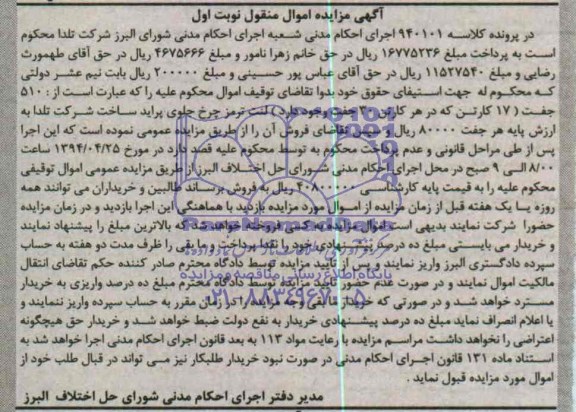 آگهی مزایده اموال منقول نوبت اول
در پرونده کلاسه ۹۴۰۱۰۱ اجرای احکام مدنی شعبه اجرای احکام مدنی شورای البرز شرکت تلدا محکوم
است به پرداخت مبلغ ۱۶۷۷۵۲۳۶ ریال در حق خانم زهرا نامور و مبلغ ۴۶۷۵۶۶۶ ریال در حق آقای طهمورث
رضایی و مبلغ ۱۱۵۲۷۵۴۰ ریال در حق آقای عباس پور حسینی و مبلغ ۲۰۰۰۰۰۰ ریال بابت نیم عشر دولتی
که محکوم له جهت استیفای حقوق خود بدوا تقاضای توقیف اموال محکوم علیه را که عبارت است از : ۵۱۰
جفت ( ۱۷ کارتن که در هر کارتن ۳۰ جفت وجود دارد ) لنت ترمز چرخ جلوی پراید ساخت شرکت تلدا به
ارزش پایه هر جفت ۸۰۰۰۰ ریال تقاضای فروش آن را از طریق مزایده عمومی نموده است که این اجرا
پس از طی مراحل قانونی و عدم پرداخت محکوم به توسط محکوم علیه قصد دارد در مورخ ۱۳۹۴/۰۴/۲۵ ساعت
۸/۰۰ الی ۹ صبح در محل اجرای احکام مدنی شورای حل اختلاف البرز از طریق مزایده عمومی اموال توقیفی
محکوم علیه را به قیمت پایه کارشناسی ۴۰۸۰۰۰۰۰ ریال به فروش برساند طالبین و خریداران می توانند همه
روزه یا یک هفته قبل از زمان مزایده از اموال مورد مزایده بازدید با هماهنگی این اجرا بازدید و در زمان مزایده
حضورا شرکت نمایند بدیهی است اموال مزایده به کسی فروخته خواهد شد که بالاترین مبلغ را پیشنهاد نمایند
و خریدار می بایستی مبلغ ده درصد پیشنهادی خود را نقدا پرداخت و مابقی را ظرف مدت دو هفته به حساب
سپرده دادگستری البرز واریز نمایند و پس از تایید مزایده توسط دادگاه محترم صادر کننده حکم تقاضای انتقال
مالکیت اموال نمایند و در صورت عدم حضور تایید مزایده توسط دادگاه محترم مبلغ ده درصد واریزی به خریدار
مسترد خواهد شد و در صورتی که خریدار مابقی وجه مزایده را در زمان مقرر به حساب سپرده واریز ننمایند و
یا اعلام انصراف نماید مبلغ ده درصد پیشنهادی خریدار به نفع دولت ضبط خواهد شد و خریدار حق هیچگونه
اعتراضی را نخواهد داشت مراسم مزایده با رعایت مواد ۱۱۳ به بعد قانون اجرای احکام مدنی اجرا خواهد شد به
استناد ماده ۱۳۱ قانون اجرای احکام مدنی در صورت نبود خریدار طلبکار نیز می تواند در قبال طلب خود از
اموال مورد مزایده قبول نماید .
مدیر دفتر اجرای احکام مدنی شورای حل اختلاف البرز
پایگاه اطلاع رسانی مناقصه و مزایده
۰۲۱-۸۸۳۴۹۶۷۰-۵